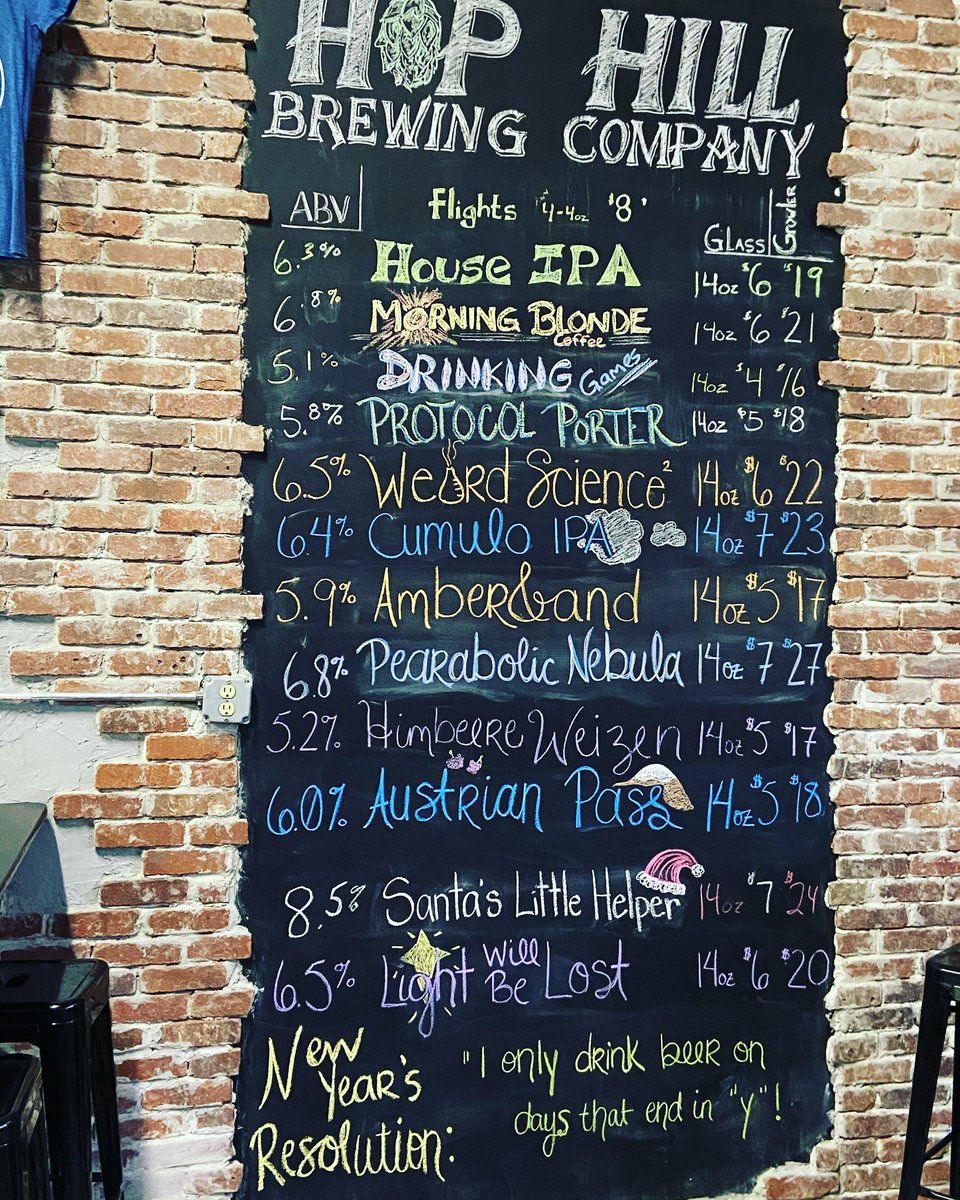 HOP HILL
BREWING COMPANY
ABV Flights $4-4oz $8 Glass Growler
6.3% House IPA 14oz $6 $19
6.8% Morning Blonde Coffee 14oz $6 $21
5.1% Drinking Games 14oz $4 $16
5.8% Protocol Porter 14oz $5 $18
6.5% Weird Science² 14oz $6 $22
6.4% Cumulo IPA 14oz $7 $23
5.9% Amber&and 14oz $5 $17
6.8% Pearabolic Nebula 14oz $7 $27
5.2% Himbeere Weizen 14oz $5 $17
6.0% Austrian Pass 14oz $5 $18
8.5% Santa's Little Helper 14oz $7 $24
6.5% Light Will Be Lost 14oz $6 $20
New Year's Resolution:
"I only drink beer on
days that end in "y"!